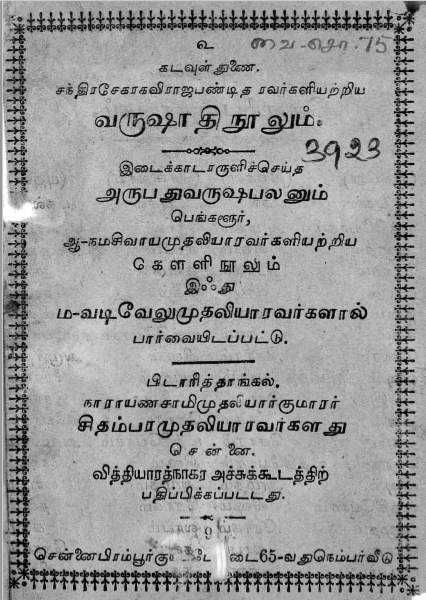 உ
வை-சொ. 75
கடவுள் துணை.
சந்திரசேகரகவிராஜபண்டித ரவர்களியற்றிய
வருஷாதிநூலும்.
3923
இடைக்காடரருளிச்செய்த
அருபதுவருஷபலனும்
பெங்களூர்,
ஆ-நமசிவாயமுதலியாரவர்களியற்றிய
கெளளிநூலும்
இஃது
ம-வடிவேலுமுதலியாரவர்களால்
பார்வையிடப்பட்டு.
பிடாரித்தாங்கல்.
நாராயணசாமிமுதலியார்குமாரர்
சிதம்பரமுதலியாரவர்களது
சென்னை.
வித்தியாரத்நாகர அச்சுக்கூடத்திற்
பதிப்பிக்கப்பட்டது.
சென்னைபிரம்பூர் 65-வதுநெம்பர்வீடு